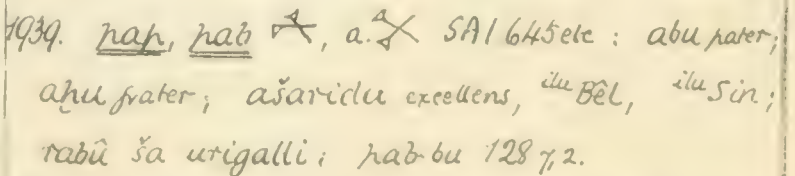 1939. pap, pab 𒉽, a. 𒉽 SAI 645 etc : abu pater;
aḫu frater; ašaridu excellens, ilu Bêl, ilu Sin;
rabû ša urigalli; pab-bu 1287,2.